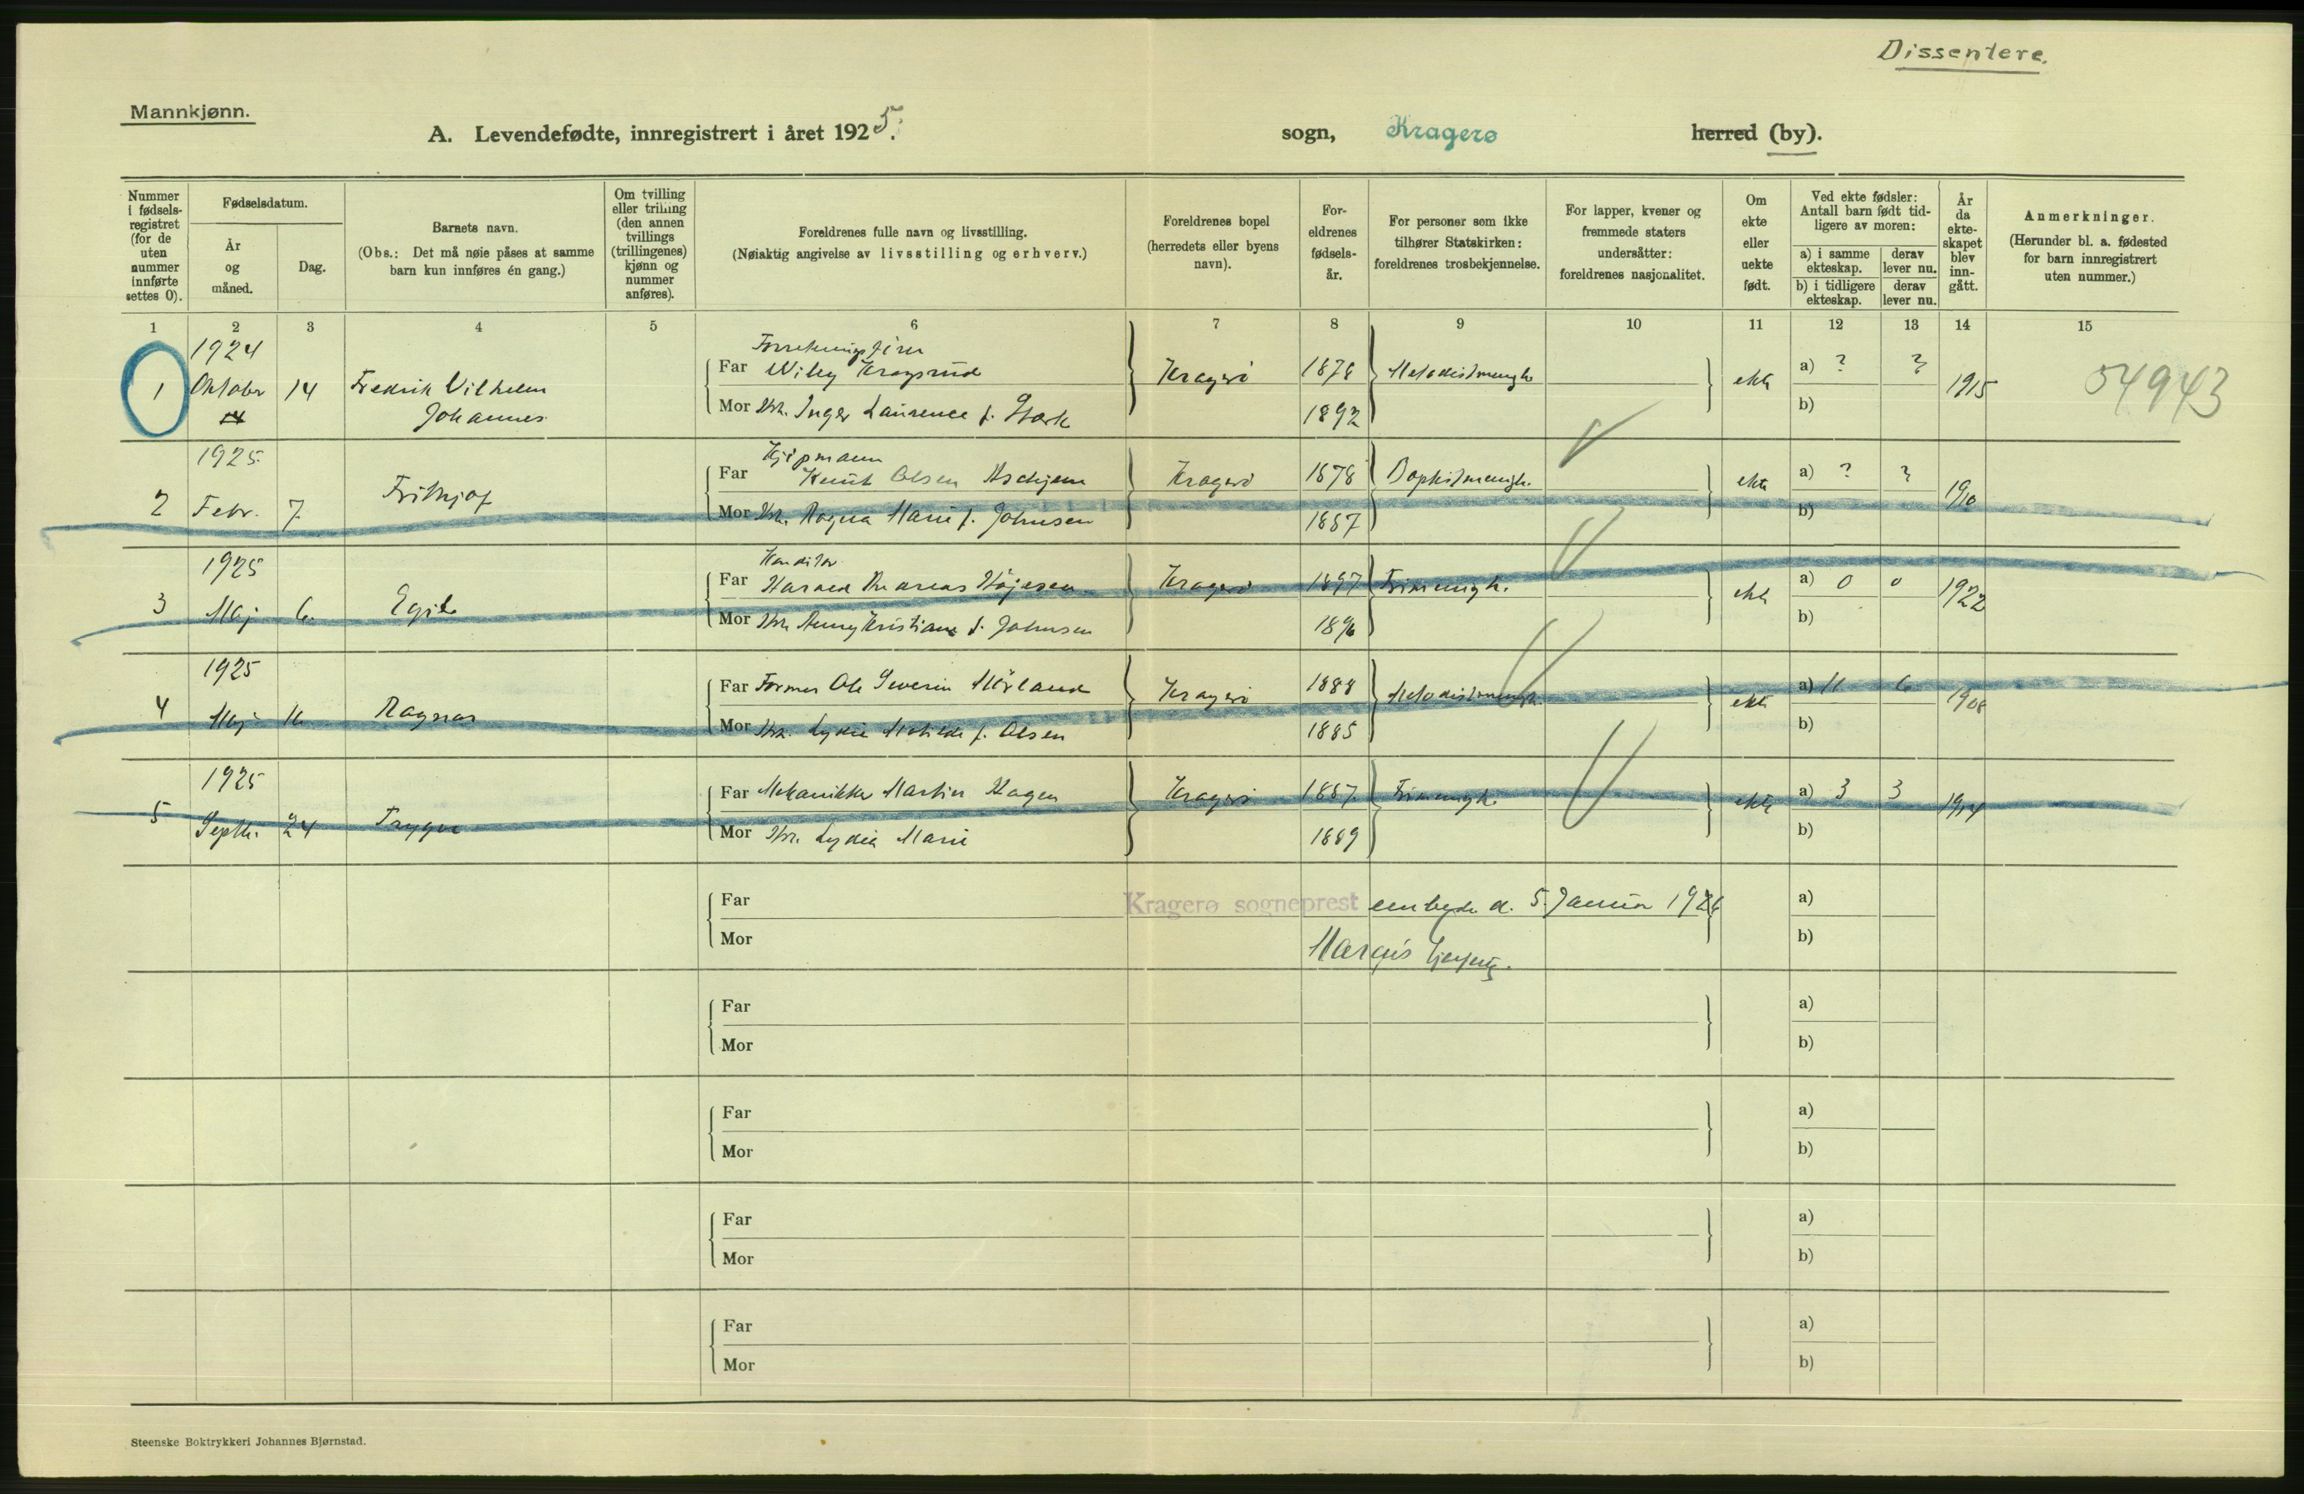 Dissentere.
Mannkjønn.
A. Levendefødte, innregistrert i året 1925. sogn, Kragerø herred (by).
Nummer i fødsels-registret (for de uten nummer innførte settes 0).
Fødselsdatum.
År og måned.
Dag.
Barnets navn.
(Obs.: Det må nøie påses at samme barn kun innføres én gang.)
Om tvilling eller trilling (den annen tvillings (trillingenes) kjønn og nummer anføres).
Foreldrenes fulle navn og livsstilling.
(Nøiaktig angivelse av livsstilling og erhverv.)
Foreldrenes bopel (herredets eller byens navn).
For-eldrenes fødsels-år.
For personer som ikke tilhører Statskirken: foreldrenes trosbekjennelse.
For lapper, kvener og fremmede staters undersåtter: foreldrenes nasjonalitet.
Om ekte eller uekte født.
Ved ekte fødsler: Antall barn født tid-ligere av moren:
a) i samme ekteskap.
derav lever nu.
b) i tidligere ekteskap.
derav lever nu.
År da ekte-skapet blev inn-gått.
Anmerkninger.
(Herunder bl. a. fødested for barn innregistrert uten nummer.)
1 2 3 4 5 6 7 8 9 10 11 12 13 14 15
1924
1 Oktober 14 Fredrik Vilhelm
Johannes
Far Willy Kragsrud Kragerø 1878 Metodistmengh. ekte a) ? ? 1915 54943
Mor Inger Laurence f. 1892 b)
1925
2 Febr. 7 Frithjof
Far Knut Olsen Kragerø 1878 Baptistmengh. ekte a) ? ? 1910
Mor Ragna Marie f. Johnsen 1887 b)
1925
3 Maj 6. Egil
Konditor
Far Harald Andreas Kragerø 1897 Frimengh. ekte a) 0 0 1922
Mor Kristiane f. Johnsen 1896 b)
1925
4 Maj Ragnar
Far Former Ole Severin Mörland Kragerø 1888 Metodistmengh. ekte a) 11 6 1908
Mor Lydia Matilde f. Olsen 1885 b)
1925
5 Septbr. 24 Trygve
Far Mekanikker Martin Hagen Kragerø 1887 Frimengh. ekte a) 3 3 1914
Mor Lydia Marie 1889 b)
Far Kragerø sogneprest embede d. 5. Januar 1926 a)
Mor b)
Far a)
Mor b)
Far a)
Mor b)
Far a)
Mor b)
Far a)
Mor b)
Steenske Boktrykkeri Johannes Bjørnstad.